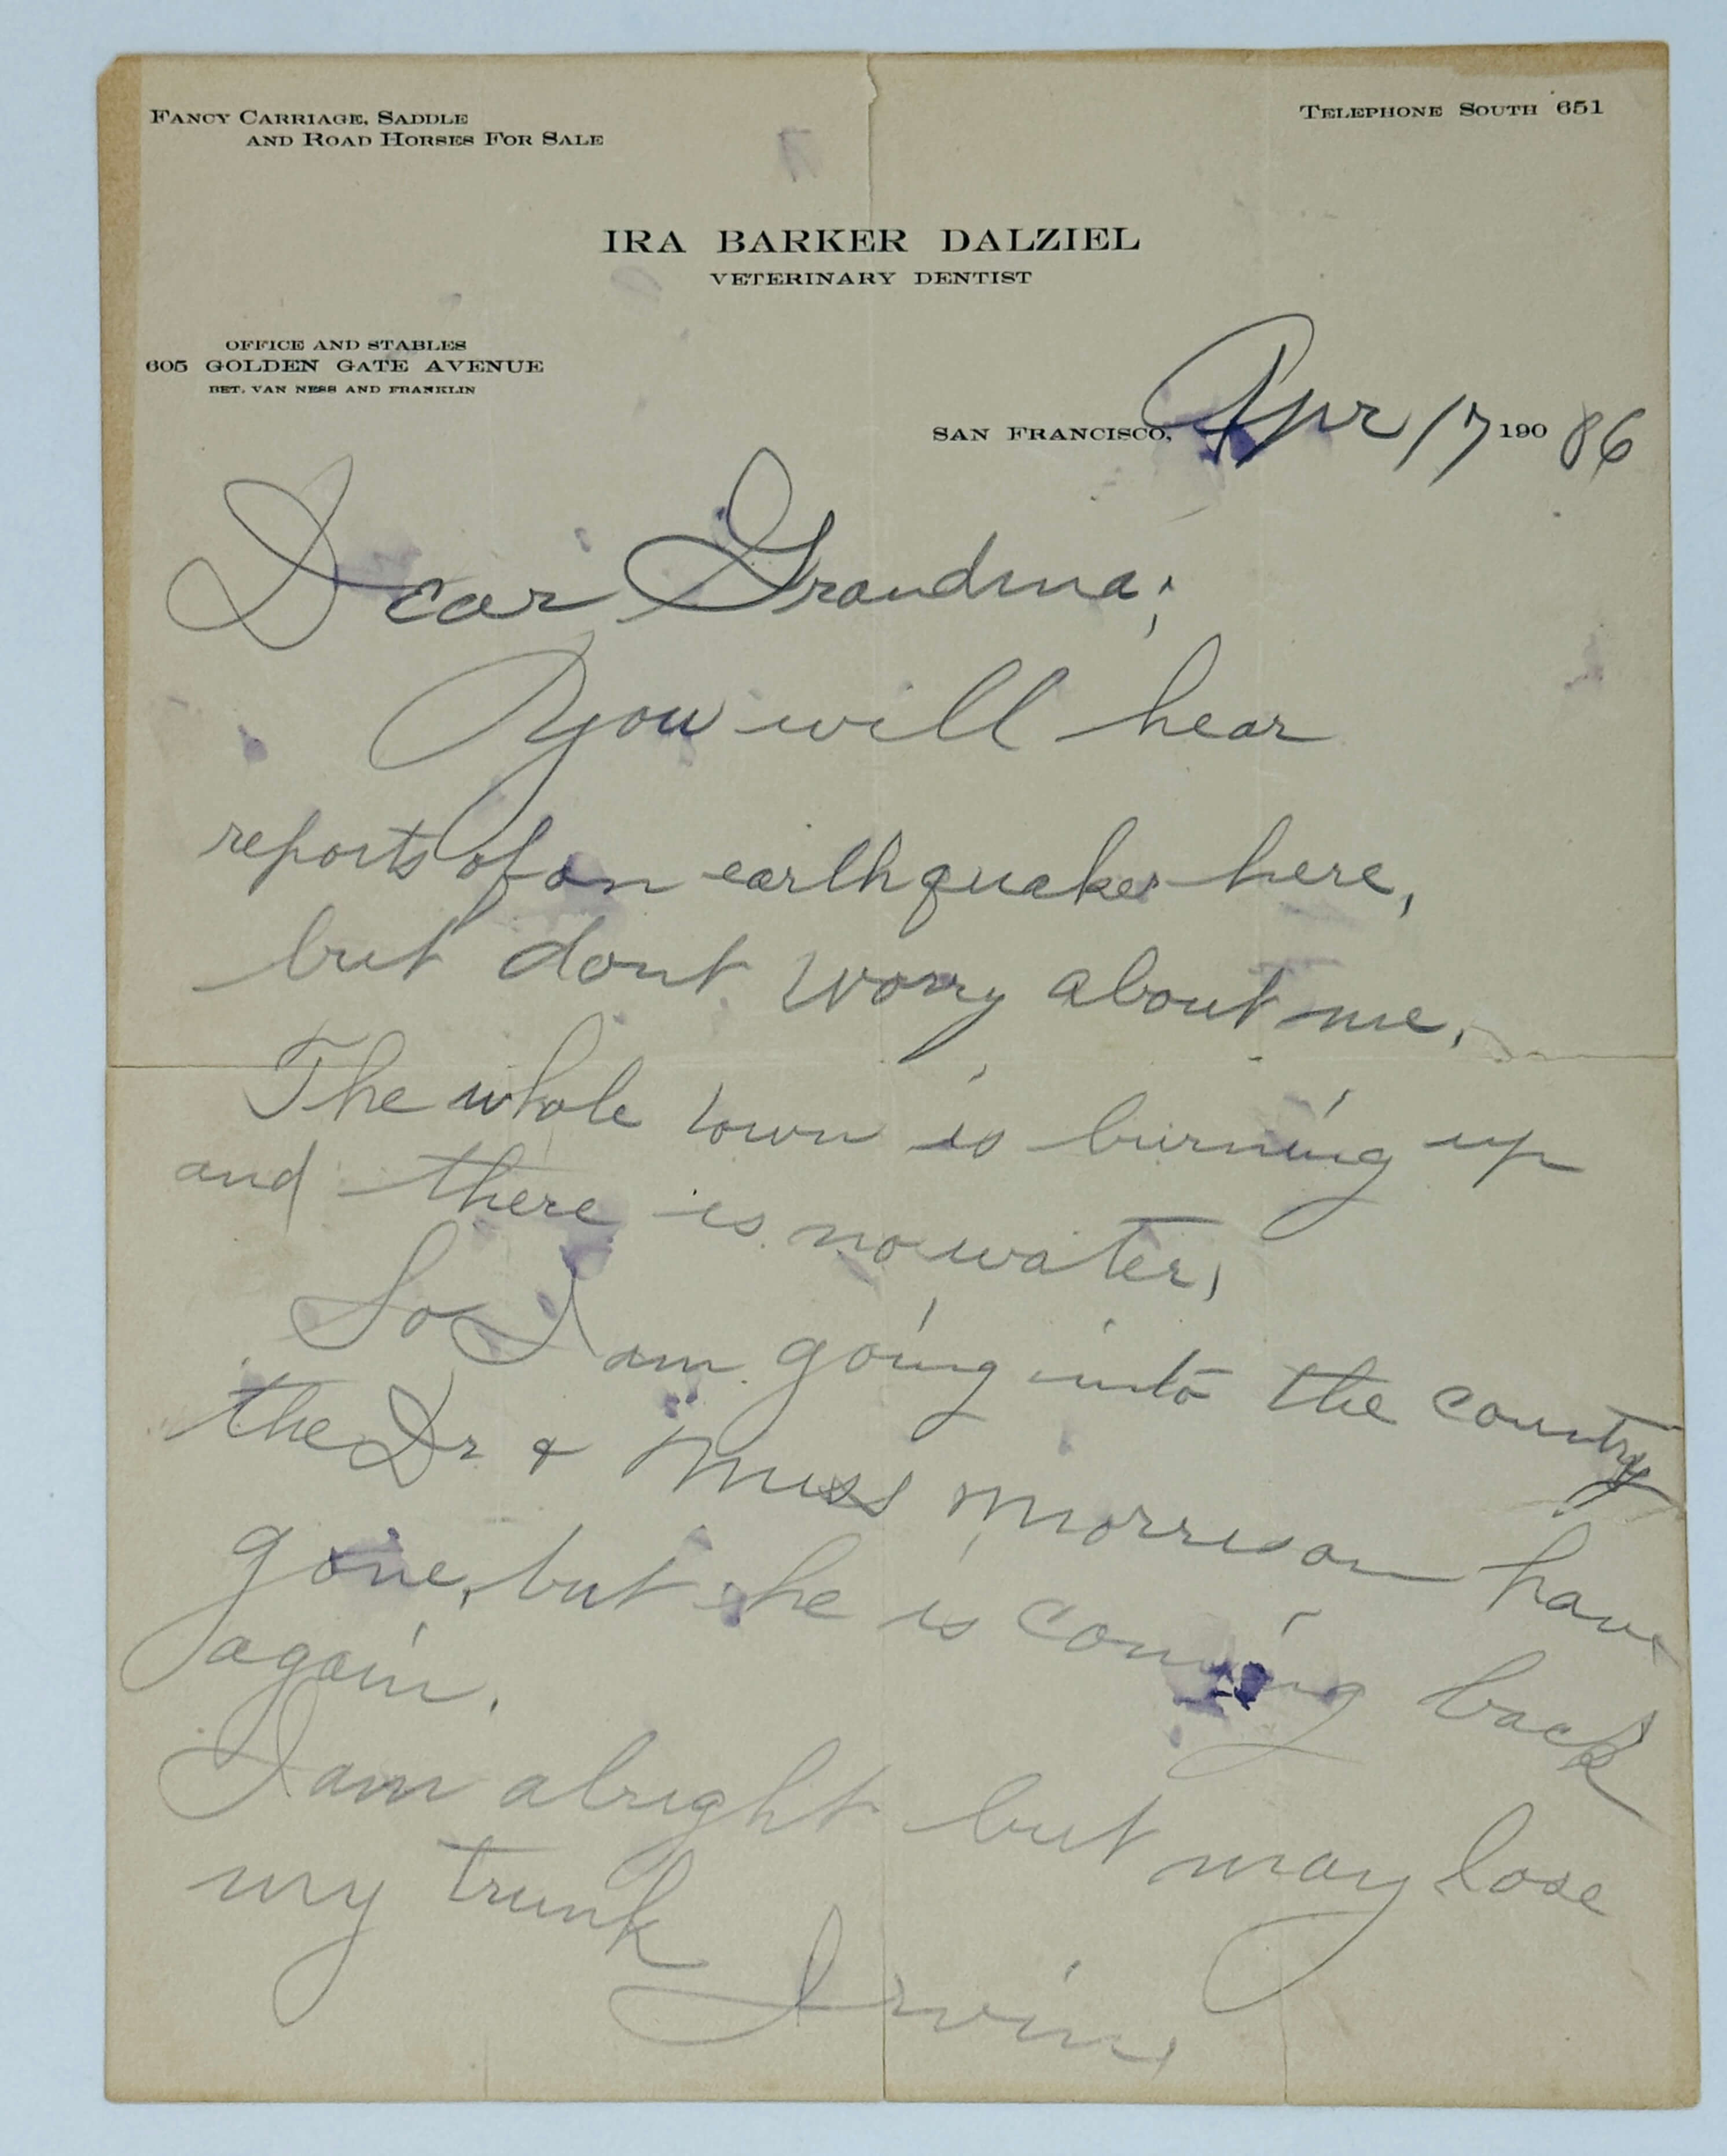 FANCY CARRIAGE, SADDLE
AND ROAD HORSES FOR SALE
TELEPHONE SOUTH 651
IRA BARKER DALZIEL
VETERINARY DENTIST
OFFICE AND STABLES
605 GOLDEN GATE AVENUE
BET. VAN NESS AND FRANKLIN
SAN FRANCISCO, Apr 17 190 06
Dear Grandma;
You will hear
reports of an earthquake here,
but dont worry about me,
The whole town is burning up
and there is no water,
So I am going into the country
the Dr & Miss Morrison have
gone, but he is coming back
again.
I am alright but may lose
my trunk
Irvin,